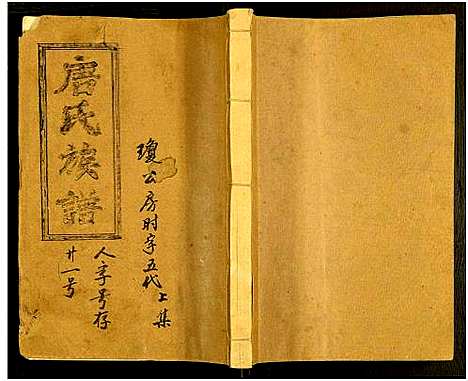 唐氏族譜
瓊公房时字五代上集
人字号存
廿一号